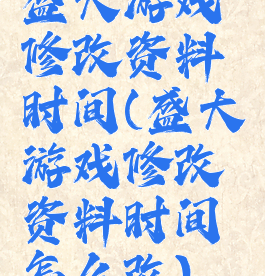 盛大游戏
修改资料
时间(盛大
游戏修改
资料时间
怎么改)